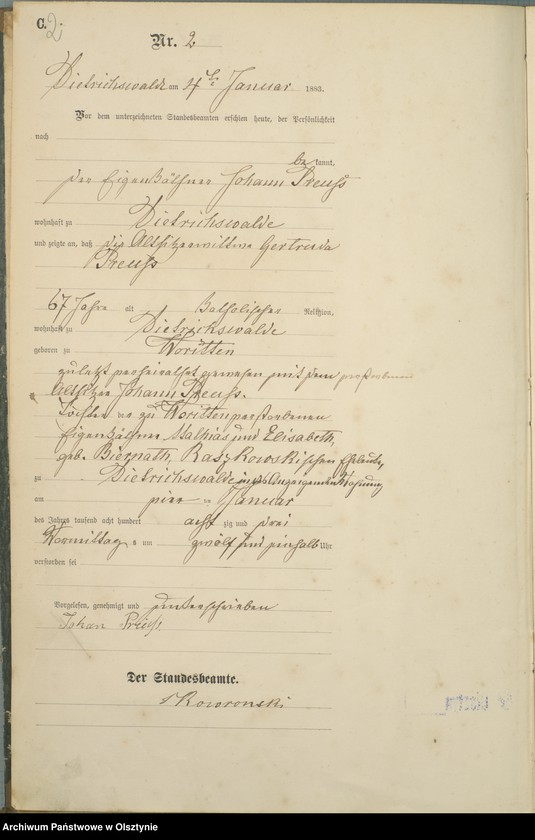 C.
2
Nr. 2
Dietrichswalde am 4ten Januar 1883.
Vor dem unterzeichneten Standesbeamten erschien heute, der Persönlichkeit
nach
be kannt,
der Eigenkäthner Johann Preuß
wohnhaft zu Dietrichswalde
und zeigte an, daß die Altsitzerwittwe Gertruda
Preuß
67 Jahre alt Katholischer Religion,
wohnhaft zu Dietrichswalde
geboren zu Woritten
zuletzt verheirathet gewesen mit dem verstorbenen
Altsitzer Johann Preuß.
Tochter der zu Woritten verstorbenen
Eigenkäthner Mathias und Elisabeth,
geb. Biernath, Raszkowskischen Eheleute,
zu Dietrichswalde in des Anzeigenden Wohnung
am Januar
des Jahres tausend acht hundert acht zig und drei
Vormittag s um zwölf und einhalb Uhr
verstorben sei
Vorgelesen, genehmigt und unterschrieben
Johan Preuß
Der Standesbeamte.
Skowronski
Archiwum Państwowe w Olsztynie